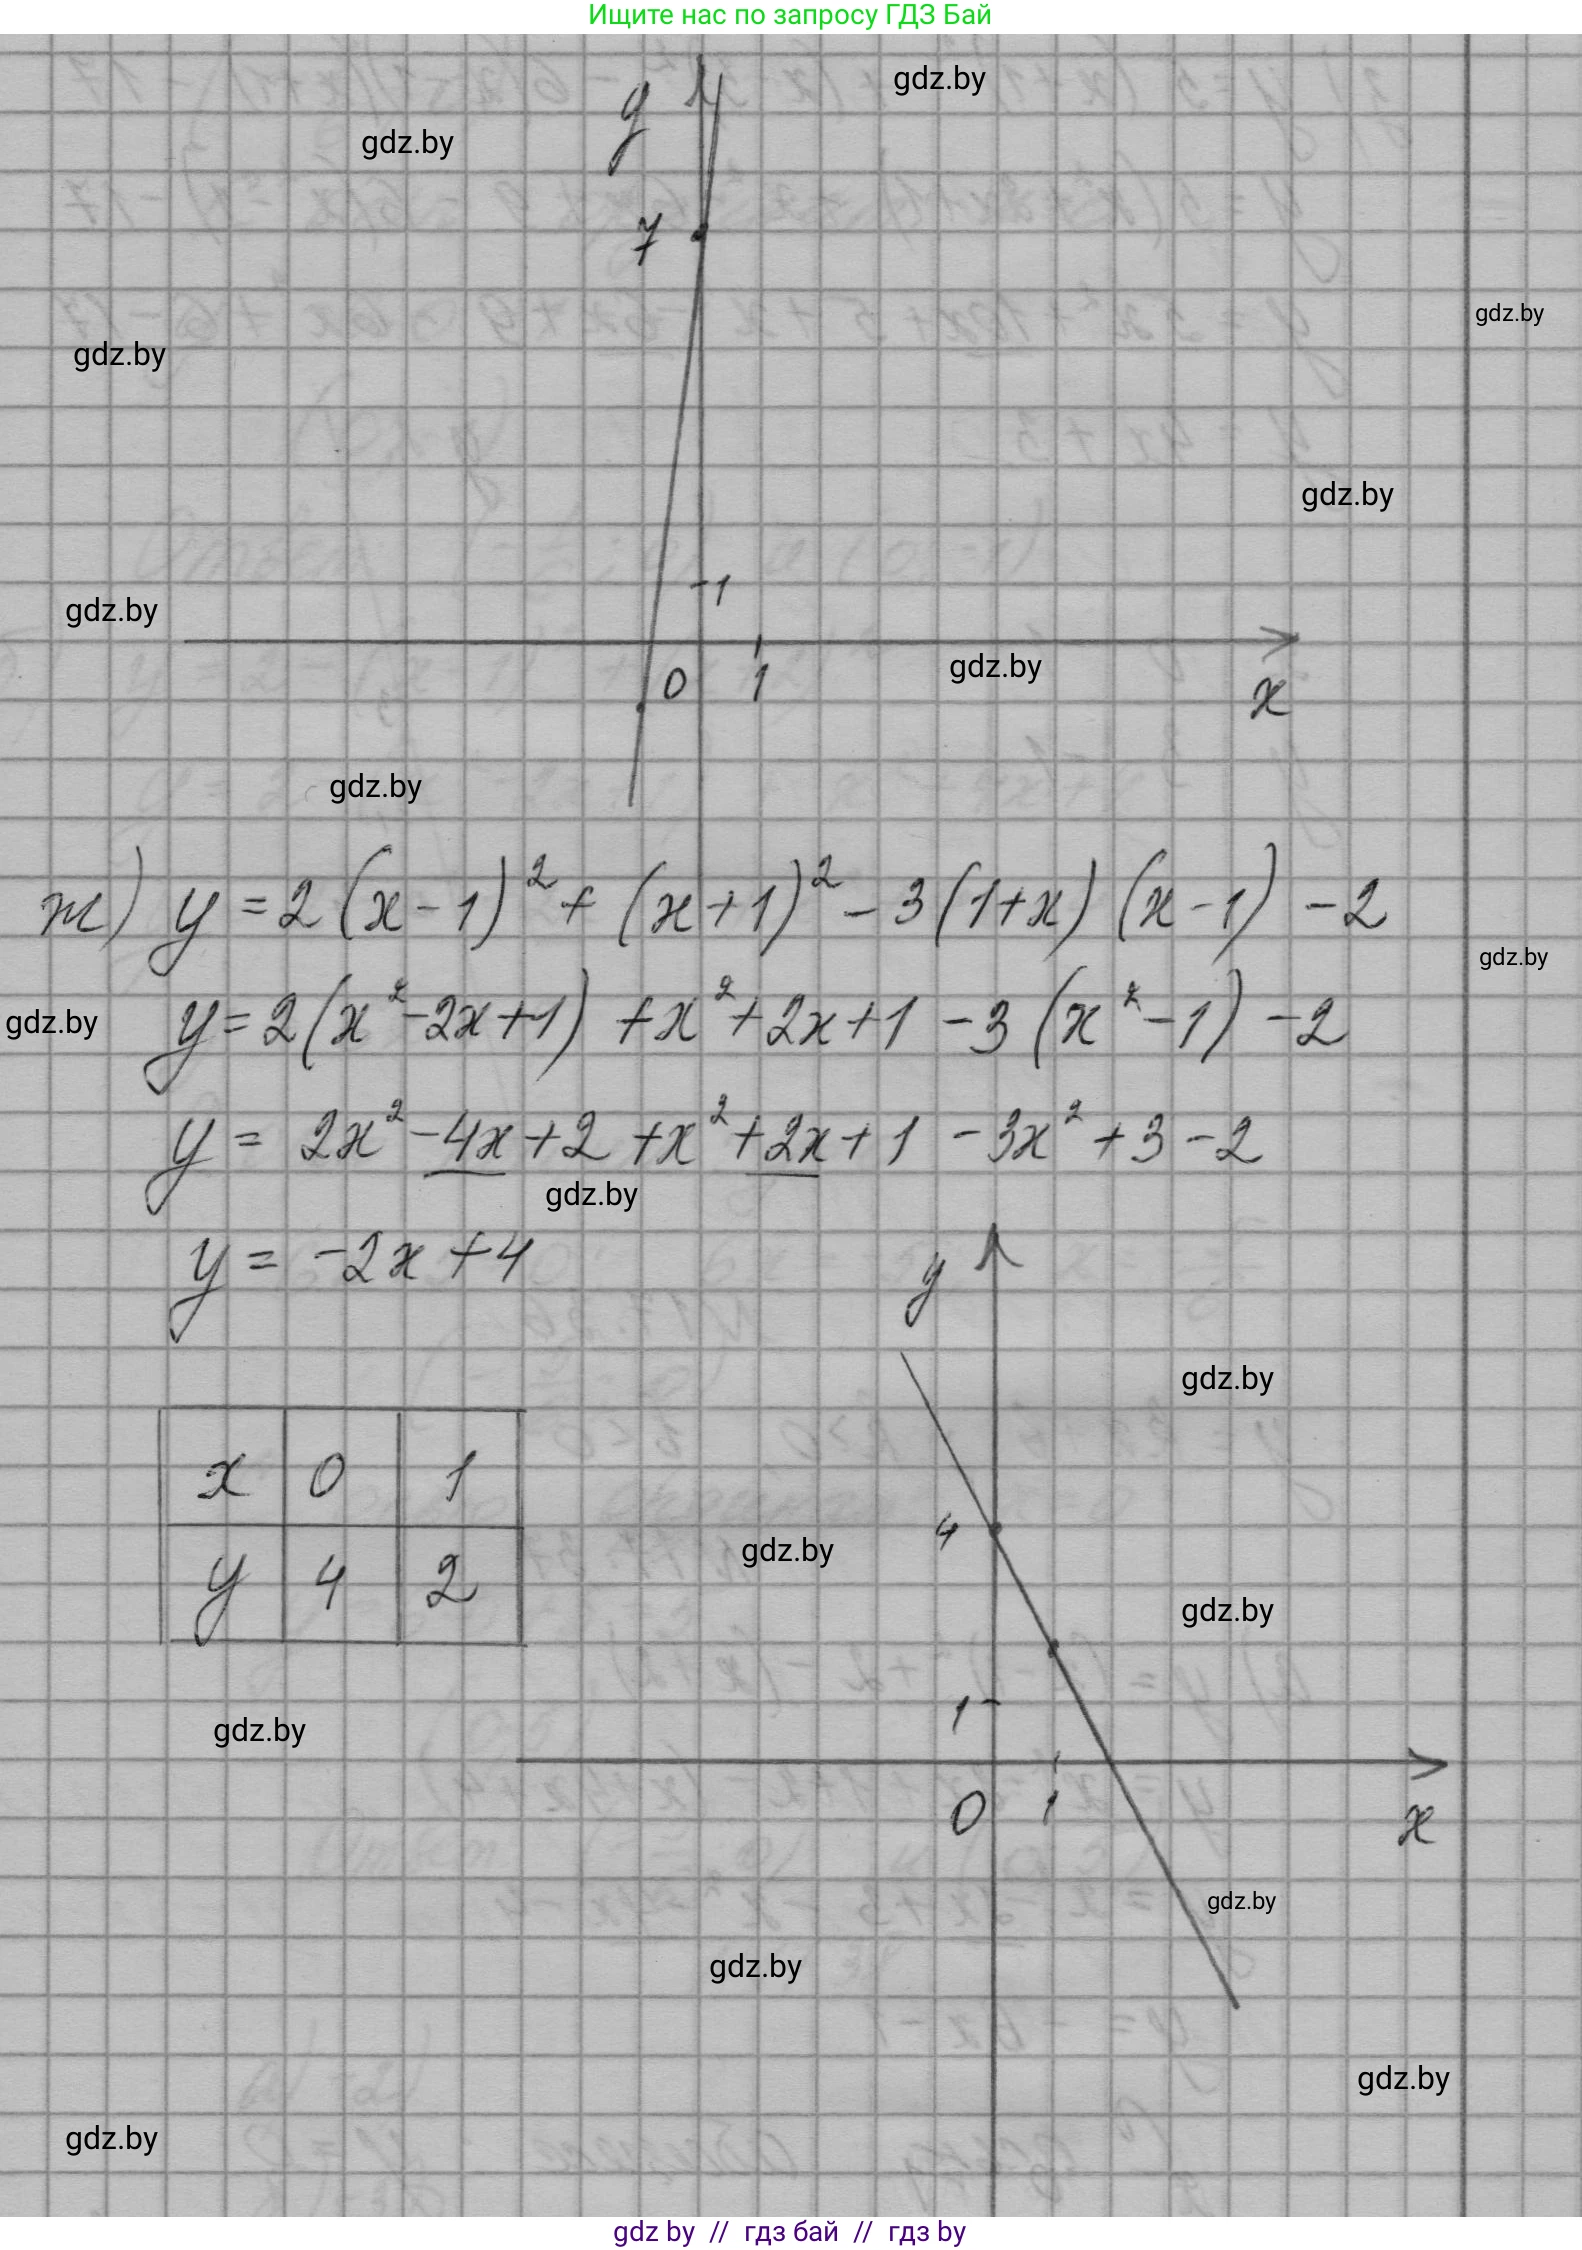 Ищите нас по запросу ГДЗ Бай
gdz.by
y
gdz.by
7
gdz.by
gdz.by
gdz.by
1
gdz.by
0 1
gdz.by
x
gdz.by
ж) y = 2(x-1)² + (x+1)² - 3(1+x)(x-1) - 2
gdz.by
y = 2(x²-2x+1) + x² + 2x + 1 - 3(x²-1) - 2
gdz.by
y = 2x² - 4x + 2 + x² + 2x + 1 - 3x² + 3 - 2
gdz.by
y = -2x + 4
y
gdz.by
x 0 1
4
gdz.by
y 4 2
gdz.by
1
gdz.by
0 1
x
gdz.by
gdz.by
gdz.by
gdz.by
gdz by // гдз бай // гдз by